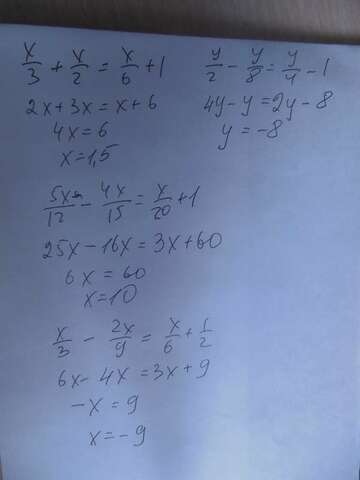 x/3 + x/2 = x/6 + 1
2x+3x = x+6
4x = 6
x = 1,5
y/2 - y/8 = y/4 - 1
4y - y = 2y - 8
y = -8
5x/12 - 4x/15 = x/20 + 1
25x - 16x = 3x + 60
6x = 60
x = 10
x/3 - 2x/9 = x/6 + 1/2
6x - 4x = 3x + 9
-x = 9
x = -9